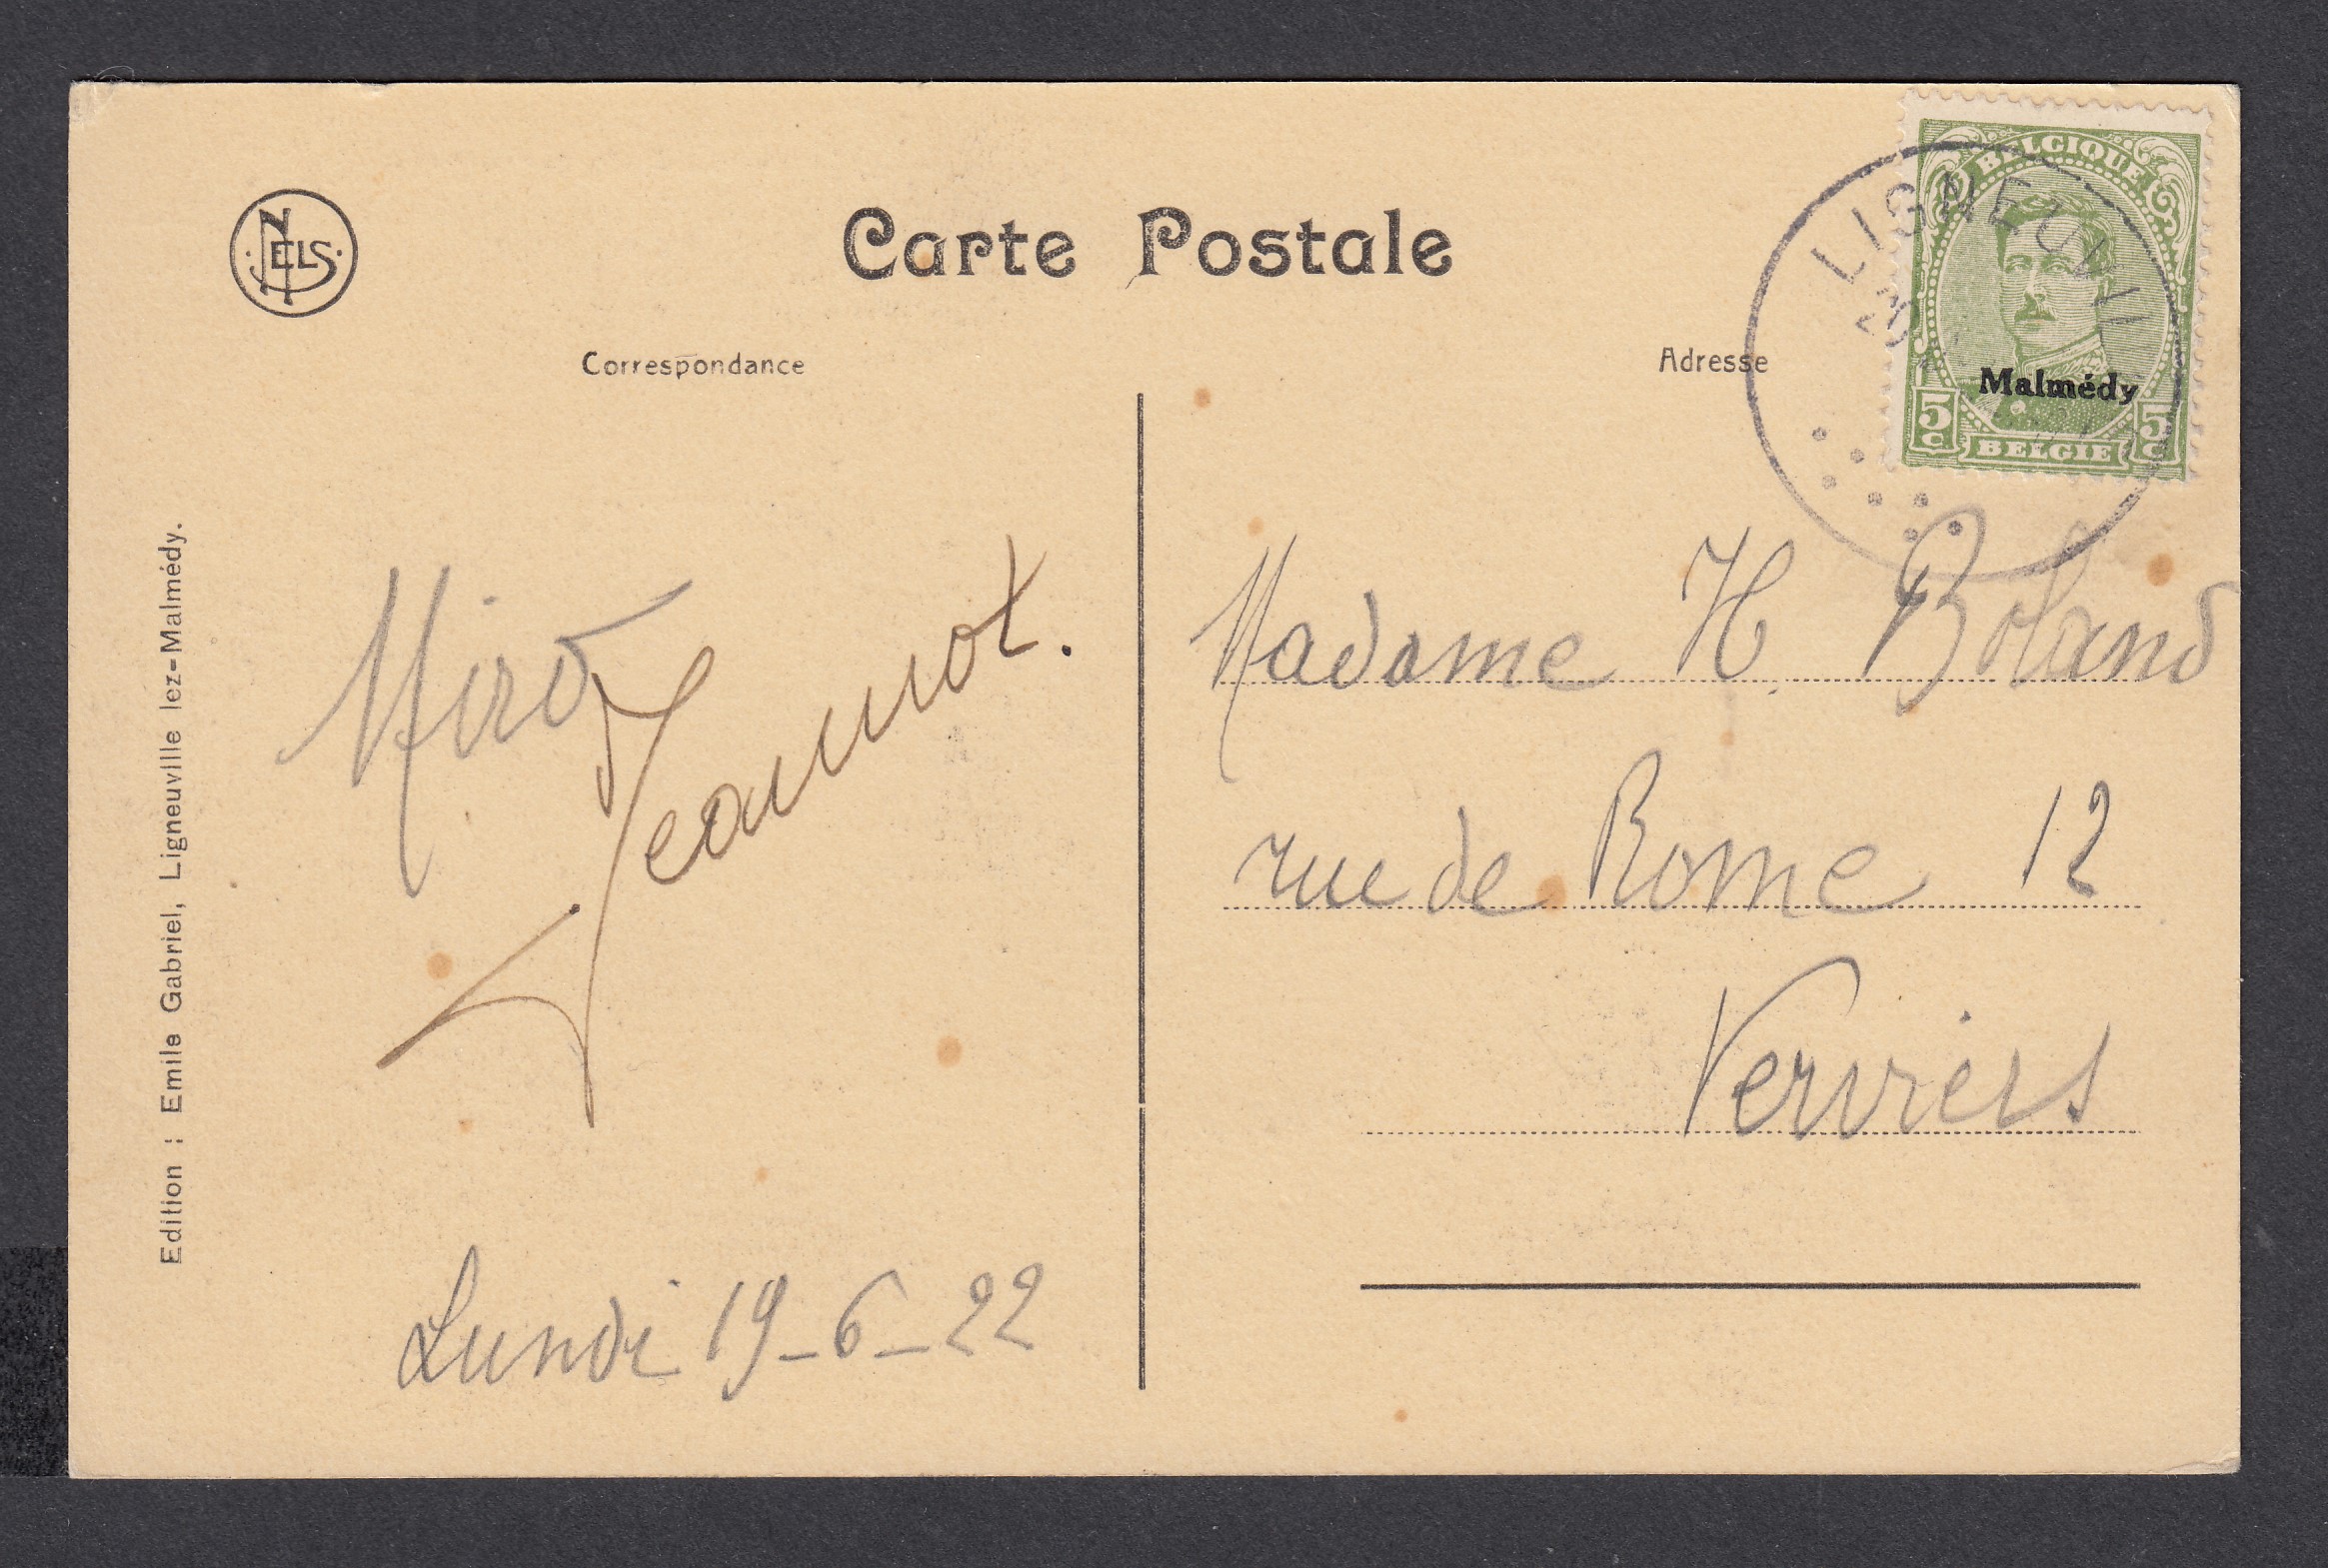 NELS
Carte Postale
Correspondance
Adresse
BELGIQUE
Malmédy
5 c. 5 c.
BELGIE
LIGNEUVILLE
20
Miro
Jeannot.
Lundi 19-6-22
Madame H. Boland
rue de Rome 12
Verviers
Edition : Emile Gabriel, Ligneuville lez-Malmédy.